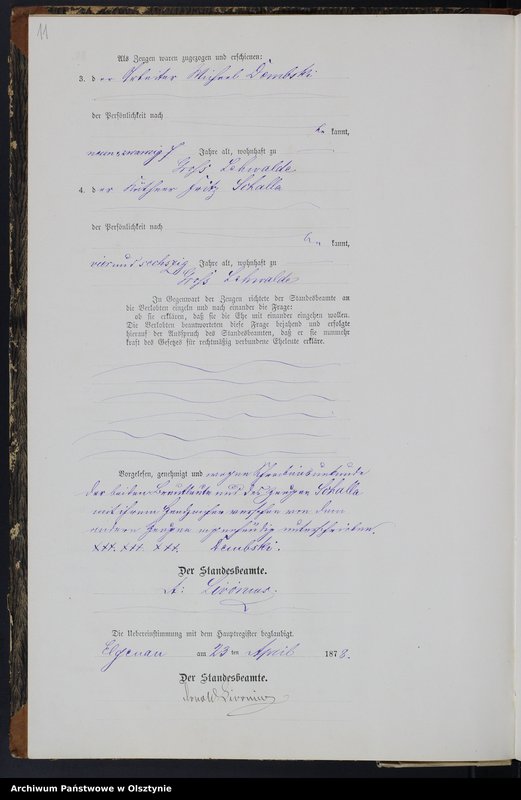 11
Als Zeugen waren zugezogen und erschienen:
3. der Arbeiter Michael Dembski
der Persönlichkeit nach
be kannt,
Jahre alt, wohnhaft zu
Groß Lehwalde
4. der Käthner Fritz Schalla
der Persönlichkeit nach
be kannt,
vier und sechszig Jahre alt, wohnhaft zu
Groß Lehwalde
In Gegenwart der Zeugen richtete der Standesbeamte an
die Verlobten einzeln und nach einander die Frage:
ob sie erklären, daß sie die Ehe mit einander eingehen wollen.
Die Verlobten beantworteten diese Frage bejahend und erfolgte
hierauf der Ausspruch des Standesbeamten, daß er sie nunmehr
kraft des Gesetzes für rechtmäßig verbundene Eheleute erkläre.
Vorgelesen, genehmigt und wegen Schreibensunkunde
der beiden Brautleute und des Zeugen Schalla
mit ihrem Handzeichen versehen von dem
andern Zeugen eigenhändig unterschrieben.
+++. +++. +++. Dembski.
Der Standesbeamte.
Livonius.
Die Uebereinstimmung mit dem Hauptregister beglaubigt.
Elgenau am 23 ten April 1878.
Der Standesbeamte.
Arnold Livonius
Archiwum Państwowe w Olsztynie